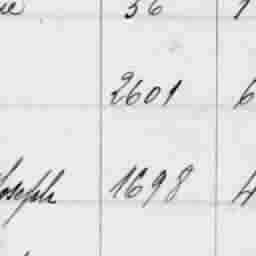 36
2601 6
Joseph 1698 4